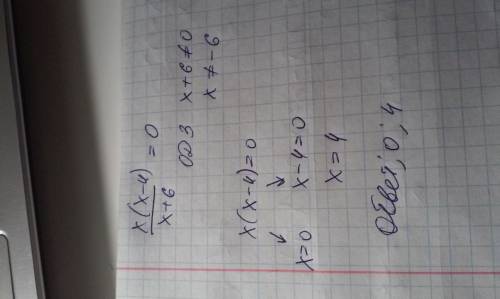 x(x-4)/x+6 = 0
ОДЗ x+6≠0
x≠-6
x(x-4)=0
x=0 x-4=0
x=4
Ответ: 0; 4